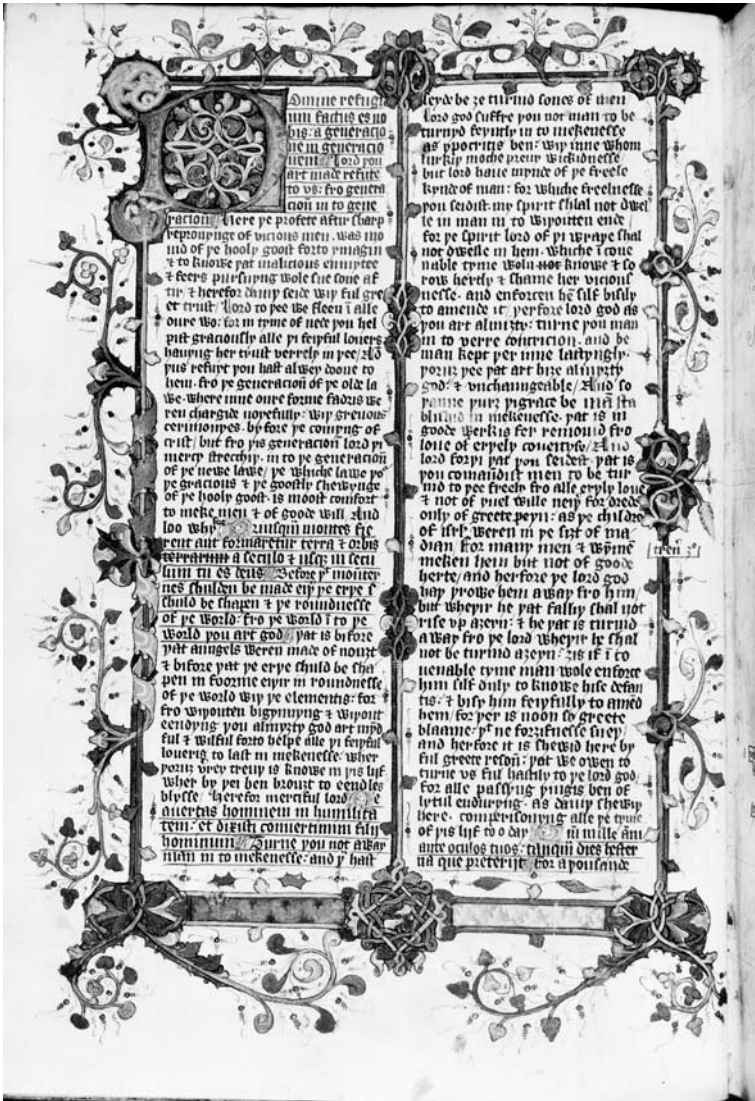 Omine refugi
um factus es no
bis: a generacio
ne in generacio
nem / Lord you
art made refute
to vs: fro genera
cioun in to gene
racioun / Here ye profete aftir sharp
reprouynge of vicious men. was mo
uid of ye hooly goost forto ymagin
⁊ to knowe yat malicious enmytee
⁊ feers pursuyng wole sue sone af
tir. ⁊ herefor dauiy seide wiy ful gre
et trist / Lord to yee we fleen ī alle
oure wo: for in tyme of nede you hel
pist graciously alle yi feiyful louers
hauyng her tryst verrely in yee /
yus refuyt you hast alwey doone to
hem. fro ye generacioū of ye olde la
we. where inne oure forme fadris we
ren chargide noyefully: wiy greuous
cerimonyes. by fore ye comyng of
crist / but fro yis generacioun lord yi
mercy strecchiy. in to ye generacioun
of ye newe lawe / ye whiche lawe yoʳ
ye gracious ⁊ ye goostly shewynge
of ye hooly goost. is moost comfort
to meke men ⁊ of goode will / And
loo why Priusquam montes fie
rent aut formaretur terra ⁊ orbis
terrarum a seculo ⁊ usqꝫ in secu
lum tu es deus Before yᵗ mountey
nes shulden be made eiy ye erye s
shuld be shapen ⁊ ye roundnesse
of ye world: fro ye world ī to ye
world you art god yat is bifore
yat aungels weren made of nouzt
⁊ bifore yat ye erye shuld be sha
pen in foorme eiyir in roundnesse
of ye world wiy ye elementis: for
fro wiyouten bigynnyng ⁊ wiyout
eendyng you almyzty god art myd
ful ⁊ wilful forto helpe alle yi feiyful
louerig to last in mekenesse. wher
yoruz verey treuy is knowe in yis lijf
wher by yei ben brouzt to eendles
blysse / herefor merciful lord Ne
auertas hominem in humilita
tem: et dixisti conuertimini filij
hominum Turne you not away
man in to mekenesse: and yᵘ hast
seyde be ze turnid sones of men
Lord god suffre you not man to be
turnyd feyntly in to mekenesse
as ypocritis ben: wiy inne whom
lurkiy moche preuy wickidnesse
but lord haue mynde of ye freele
kynde of man: for whiche freelnesse
you seidist. my spirit shal not dwel
le in man in to wiyouten ende
for ye spirit lord of yi wraye shal
not dwelle in hem. whiche ī coue
nable tyme woln not knowe ⁊ so
row hertly ⁊ shame her vicious
nesse. and enforcen hē silf bisily
to amende it / yerfore lord god as
you art almizty: turne you man
in to verre contricion. and be
man kept yer inne lastyngly.
yoruz yee yat art hize almyzty
god: ⁊ vnchaungeable / And so
yanne yurz yi grace be man sta
blishid in mekenesse. yat is in
goode werkis fer remouid fro
loue of eryely coueityse / And
lord foryi yat you seidest. yat is
you comandist men to be tur
nid to yee freely fro alle eryly loue
⁊ not of yuel wille neiy for drede
only of greete peyn: as ye childrē
of isrł. weren in ye sizt of ma
dian / For many men ⁊ wymē
meken hem but not of goode
herte / and herfore ye lord god
yay yrowe hem away fro him /
but wheyir he yat falliy shal not
rise vp azeyn: ⁊ he yat is turnid
away fro ye lord wheyir he shal
not be turnid azeyn: zis if ī co
uenable tyme man wole enforce
him silf duly to knowe hise defau
tis: ⁊ bisy him feiyfully to amēd
hem / for yer is noon so greete
blaame: yᵗ ne forzifnesse suey /
and herfore it is shewid here by
ful greete resoū: yat we owen to
turne vs ful hastily to ye lord god
for alle passyng yingis ben of
lytul enduryng. as dauiy shewiy
here. comperisonyng alle ye tyme
of yis lijf to o day Qm mille āni
ante oculos tuos: tanqm̄ dies hester
na que preterijt / For a yousande